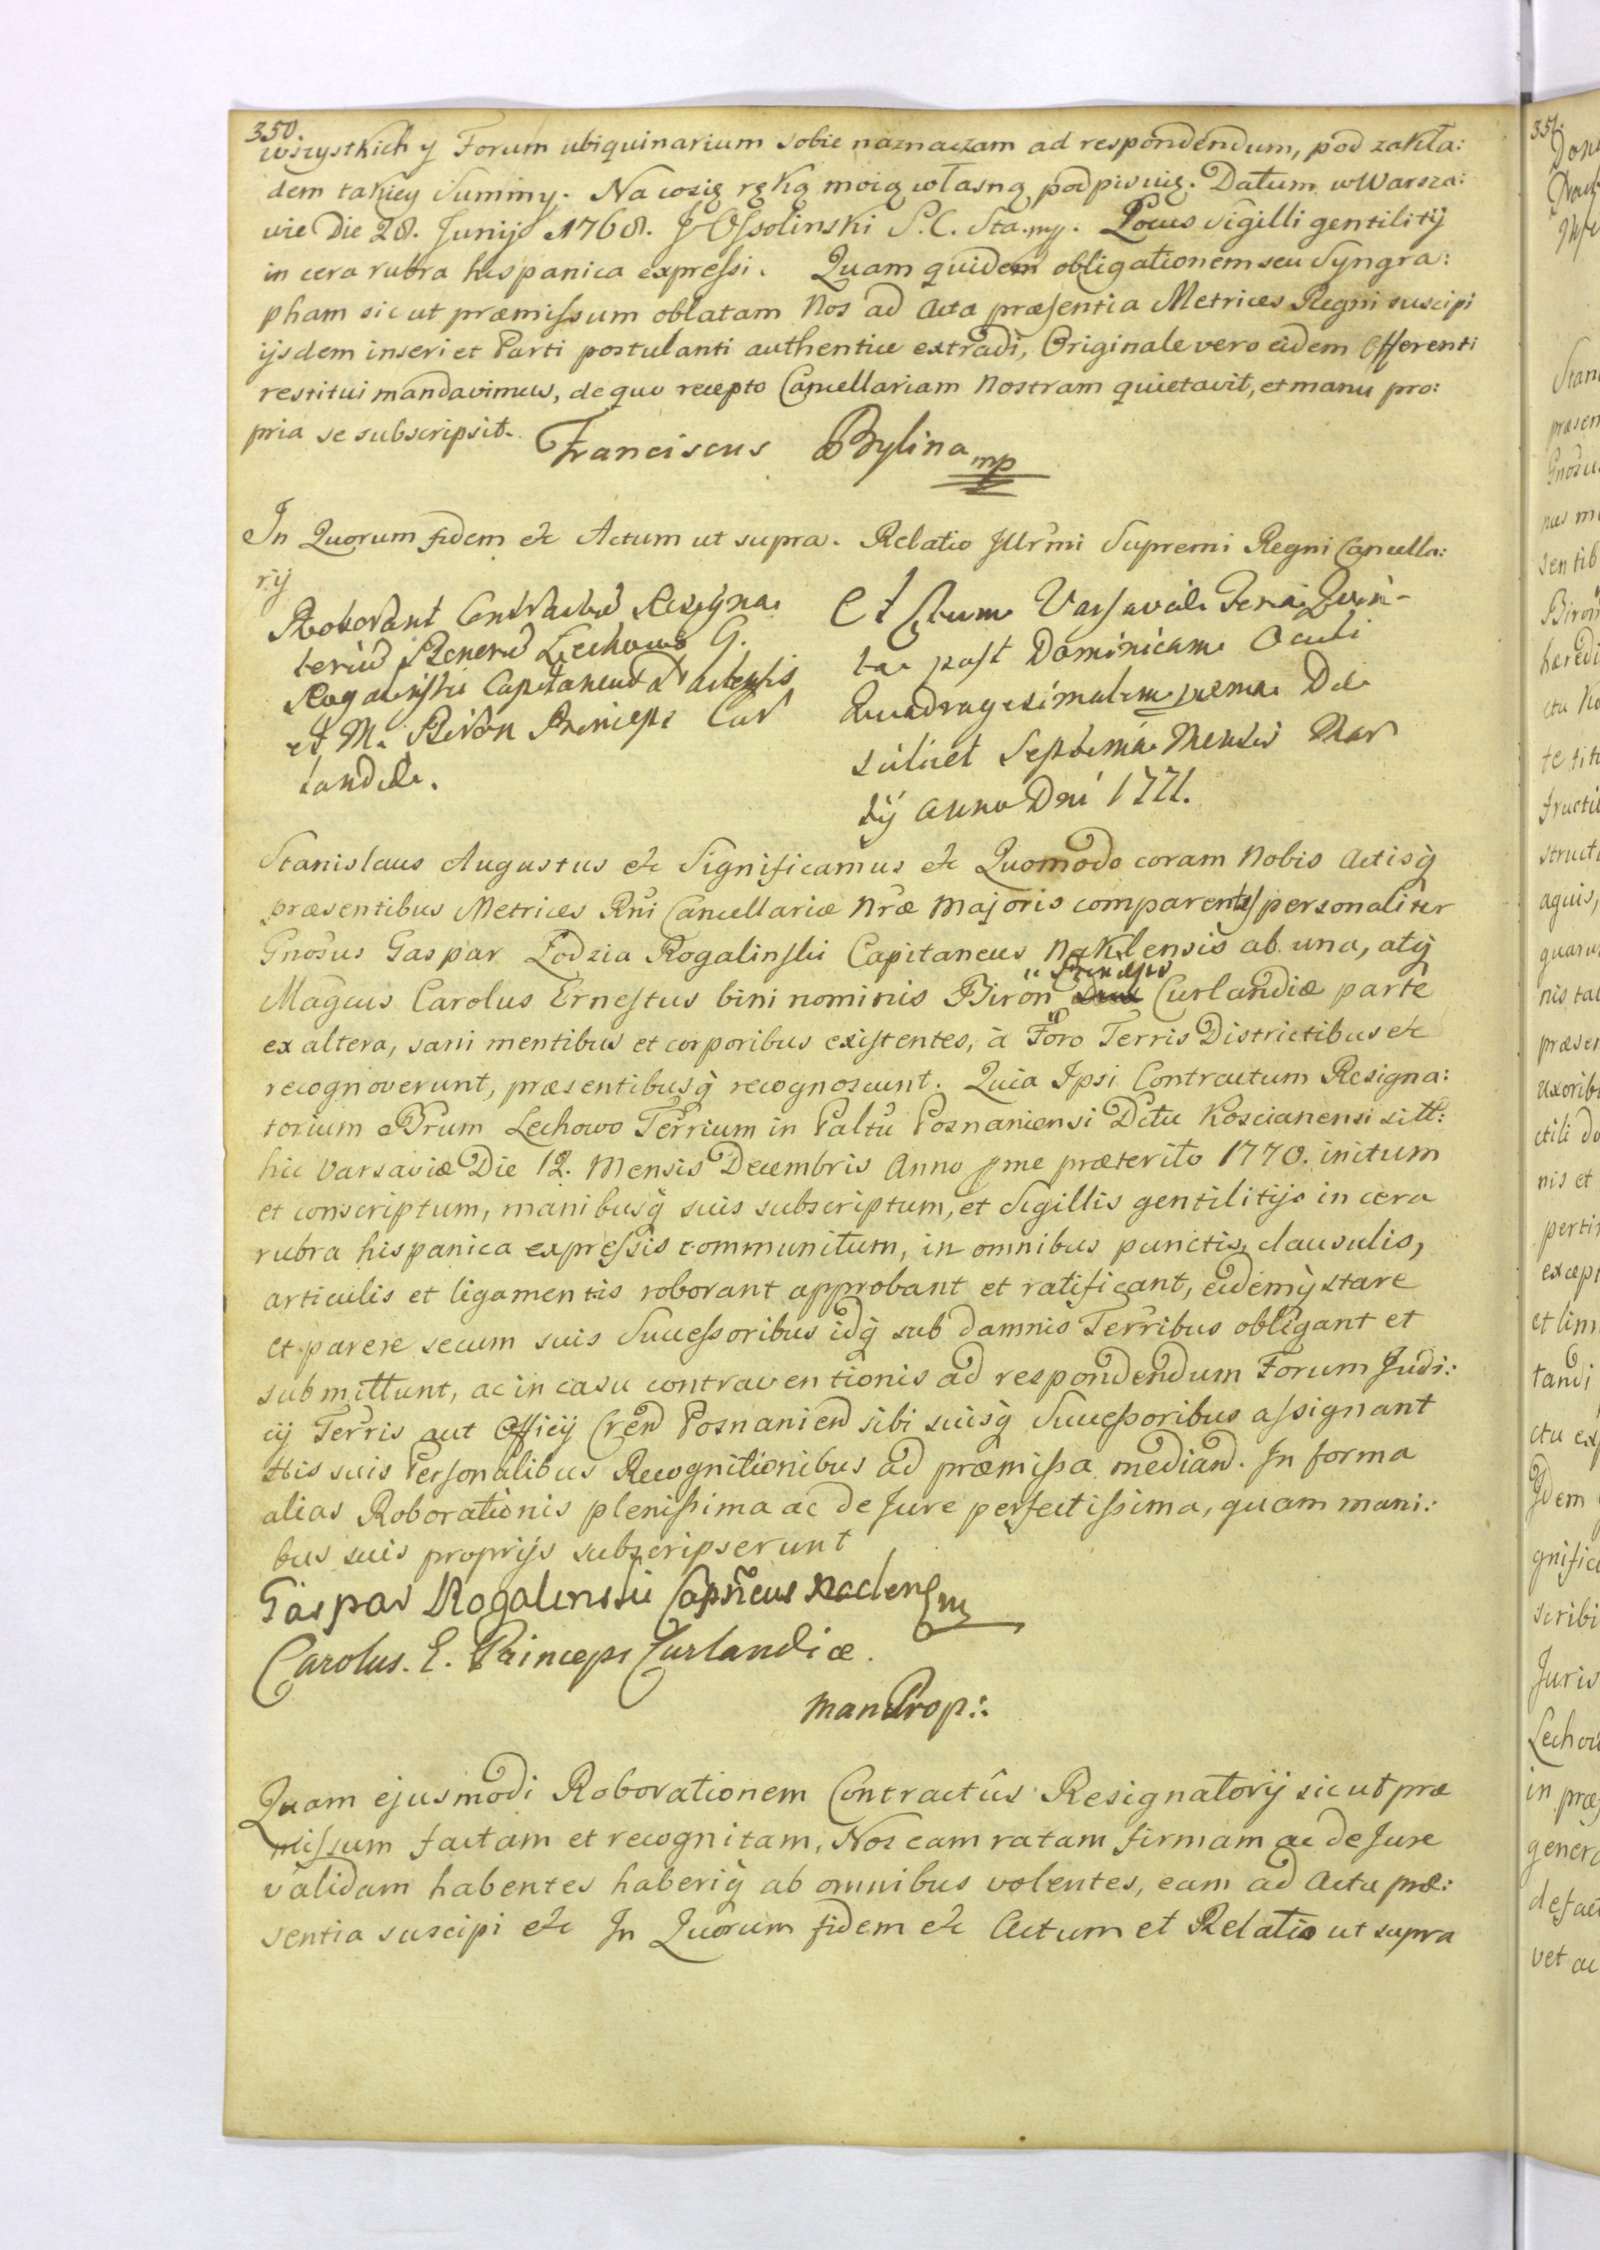 350.
wszystkich y Forum ubiquinarium sobie naznaczam ad respondendum, pod zakła:
dem takiey Summy. Na cosię ręką moią własną podpisuię. Datum w Warsza:
wie Die 28. Junij 1768. J Ossolinski S. C. Sta. mp. Locus Sigilli gentilitij
in cera rubra hispanica expressi. Quam quidem obligationem seu Syngra:
pham sicut præmissum oblatam Nos ad Acta præsentia Metrices Regni suscipi
ijsdem inseri et Parti postulanti authentice extradi, Originale vero eidem Offerenti
restitui mandavimus, de quo recepto Cancellariam Nostram quietavit, et manu pro:
pria se subscripsit.
Franciscus Bylina mp
In Quorum fidem &c Actum ut supra. Relatio Illrmi Supremi Regni Cancella:
rij
Roborant Contractus Resigna
torius Lechowo G.
Rogalinski Capitaneus
et M. Biron Princeps Cur
landiæ.
Actum Varsaviæ Feria Quin-
ta post Dominicam Oculi
Quadragesimalem Die
scilicet Septima Mensis Mar
tij Anno Dni 1771.
Stanislaus Augustus &c Significamus &c Quomodo coram Nobis Actisq̃
præsentibus Metrices Rni Cancellariæ Nræ Majoris comparentes personaliter
Gnosus Gaspar Łodzia Rogalinski Capitaneus Naklensis ab una, atq̃
Magcus Carolus Ernestus bini nominis Biron Princeps Curlandiæ parte
ex altera, sani mentibus et corporibus existentes, à Foro Terris Districtibus &c
recognoverunt, præsentibusq̃ recognoscunt. Quia Ipsi Contractum Resigna:
torium Brum Lechowo Terrium in Paltu Posnaniensi Dctu Koscianensi sitt:
hic Varsaviæ Die 12. Mensis Decembris Anno pme præterito 1770. initum
et conscriptum, manibusq̃ suis subscriptum, et Sigillis gentilitijs in cera
rubra hispanica expressis communitum, in omnibus punctis, clausulis,
articulis et ligamentis roborant approbant et ratificant, eidemq̃ stare
et parere secum suis Successoribus idq̃ sub damnis Terribus obligant et
submittunt, ac in casu contraventionis ad respondendum Forum Judi:
cij Terris aut Officij Cren Posnanien sibi suisq̃ Successoribus assignant
His suis Personalibus Recognitionibus ad præmissa median. In forma
alias Roborationis plenissima ac de Jure perfectissima, quam mani:
bus suis proprijs subscripserunt
Gaspar Rogalinski Capneus Naclen mp
Carolus. E. Princeps Curlandiæ.
manuProp:.
Quam ejusmodi Roborationem Contractûs Resignatorij sicut præ
missum factam et recognitam, Nos eam ratam firmam ac de Jure
validam habentes haberiq̃ ab omnibus volentes, eam ad Acta præ:
sentia suscipi &c In Quorum fidem &c Actum et Relatio ut supra